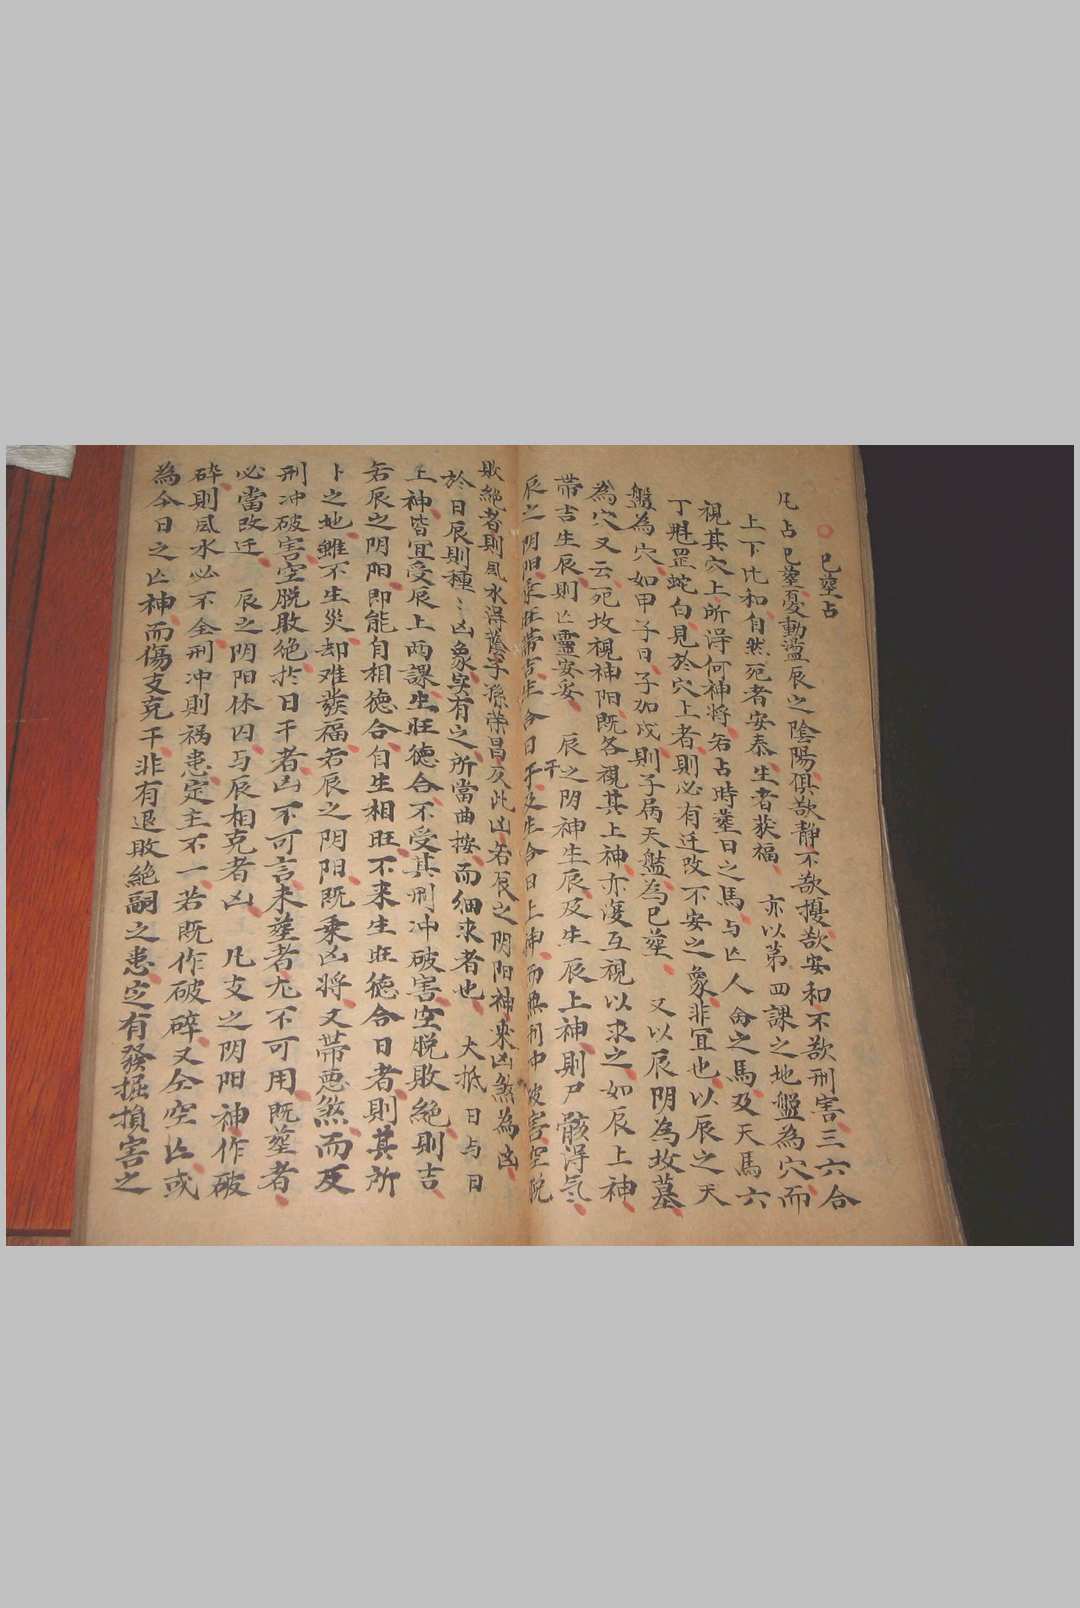 已塟占
凡占已塟憂動盪辰之陰陽俱欲靜不欲擾欲安和不欲刑害三六合
上下比和自然死者安泰生者获福 亦以第四課之地盤為穴而
視其穴上所得何神将若占時塟日之馬与亾人命之馬及天馬六
丁魁罡蛇白見於穴上者則必有迁改不安之象非宜也以辰之天
盤為穴如甲子日子加戌則子為天盤為已塟 又以辰阴為坟墓
為穴又云死坟視神阳既各視其上神亦復互視以求之如辰上神
带吉生辰則亾靈安妥 辰之阴神生辰及生辰上神則尸骸得氣
辰之阴阳乘旺带吉生合日干及生合日上神而無刑冲破害空脱
敗絕者則風水得蔭子孫荣昌反此凶若辰之阴阳神乘凶煞為凶
於日辰則種〻凶象实有之所當曲按而細求者也 大抵日与日
上神皆宜受辰上两課生旺德合不受其刑冲破害空脱敗絕則吉
若辰之阴阳即能自相德合自生相旺不来生旺德合日者則其所
卜之地雖不生災却难發福若辰之阴阳既乘凶将又带悪煞而反
刑冲破害空脱敗絕於日干者凶不可言未塟者尤不可用既塟者
必當改迁 辰之阴阳休囚与辰相克者凶 凡支之阴阳神作破
碎則風水必不全刑冲則祸患定主不一若既作破碎又仝空亾或
為今日之亾神而傷支克干非有退敗絕嗣之患定有發掘損害之